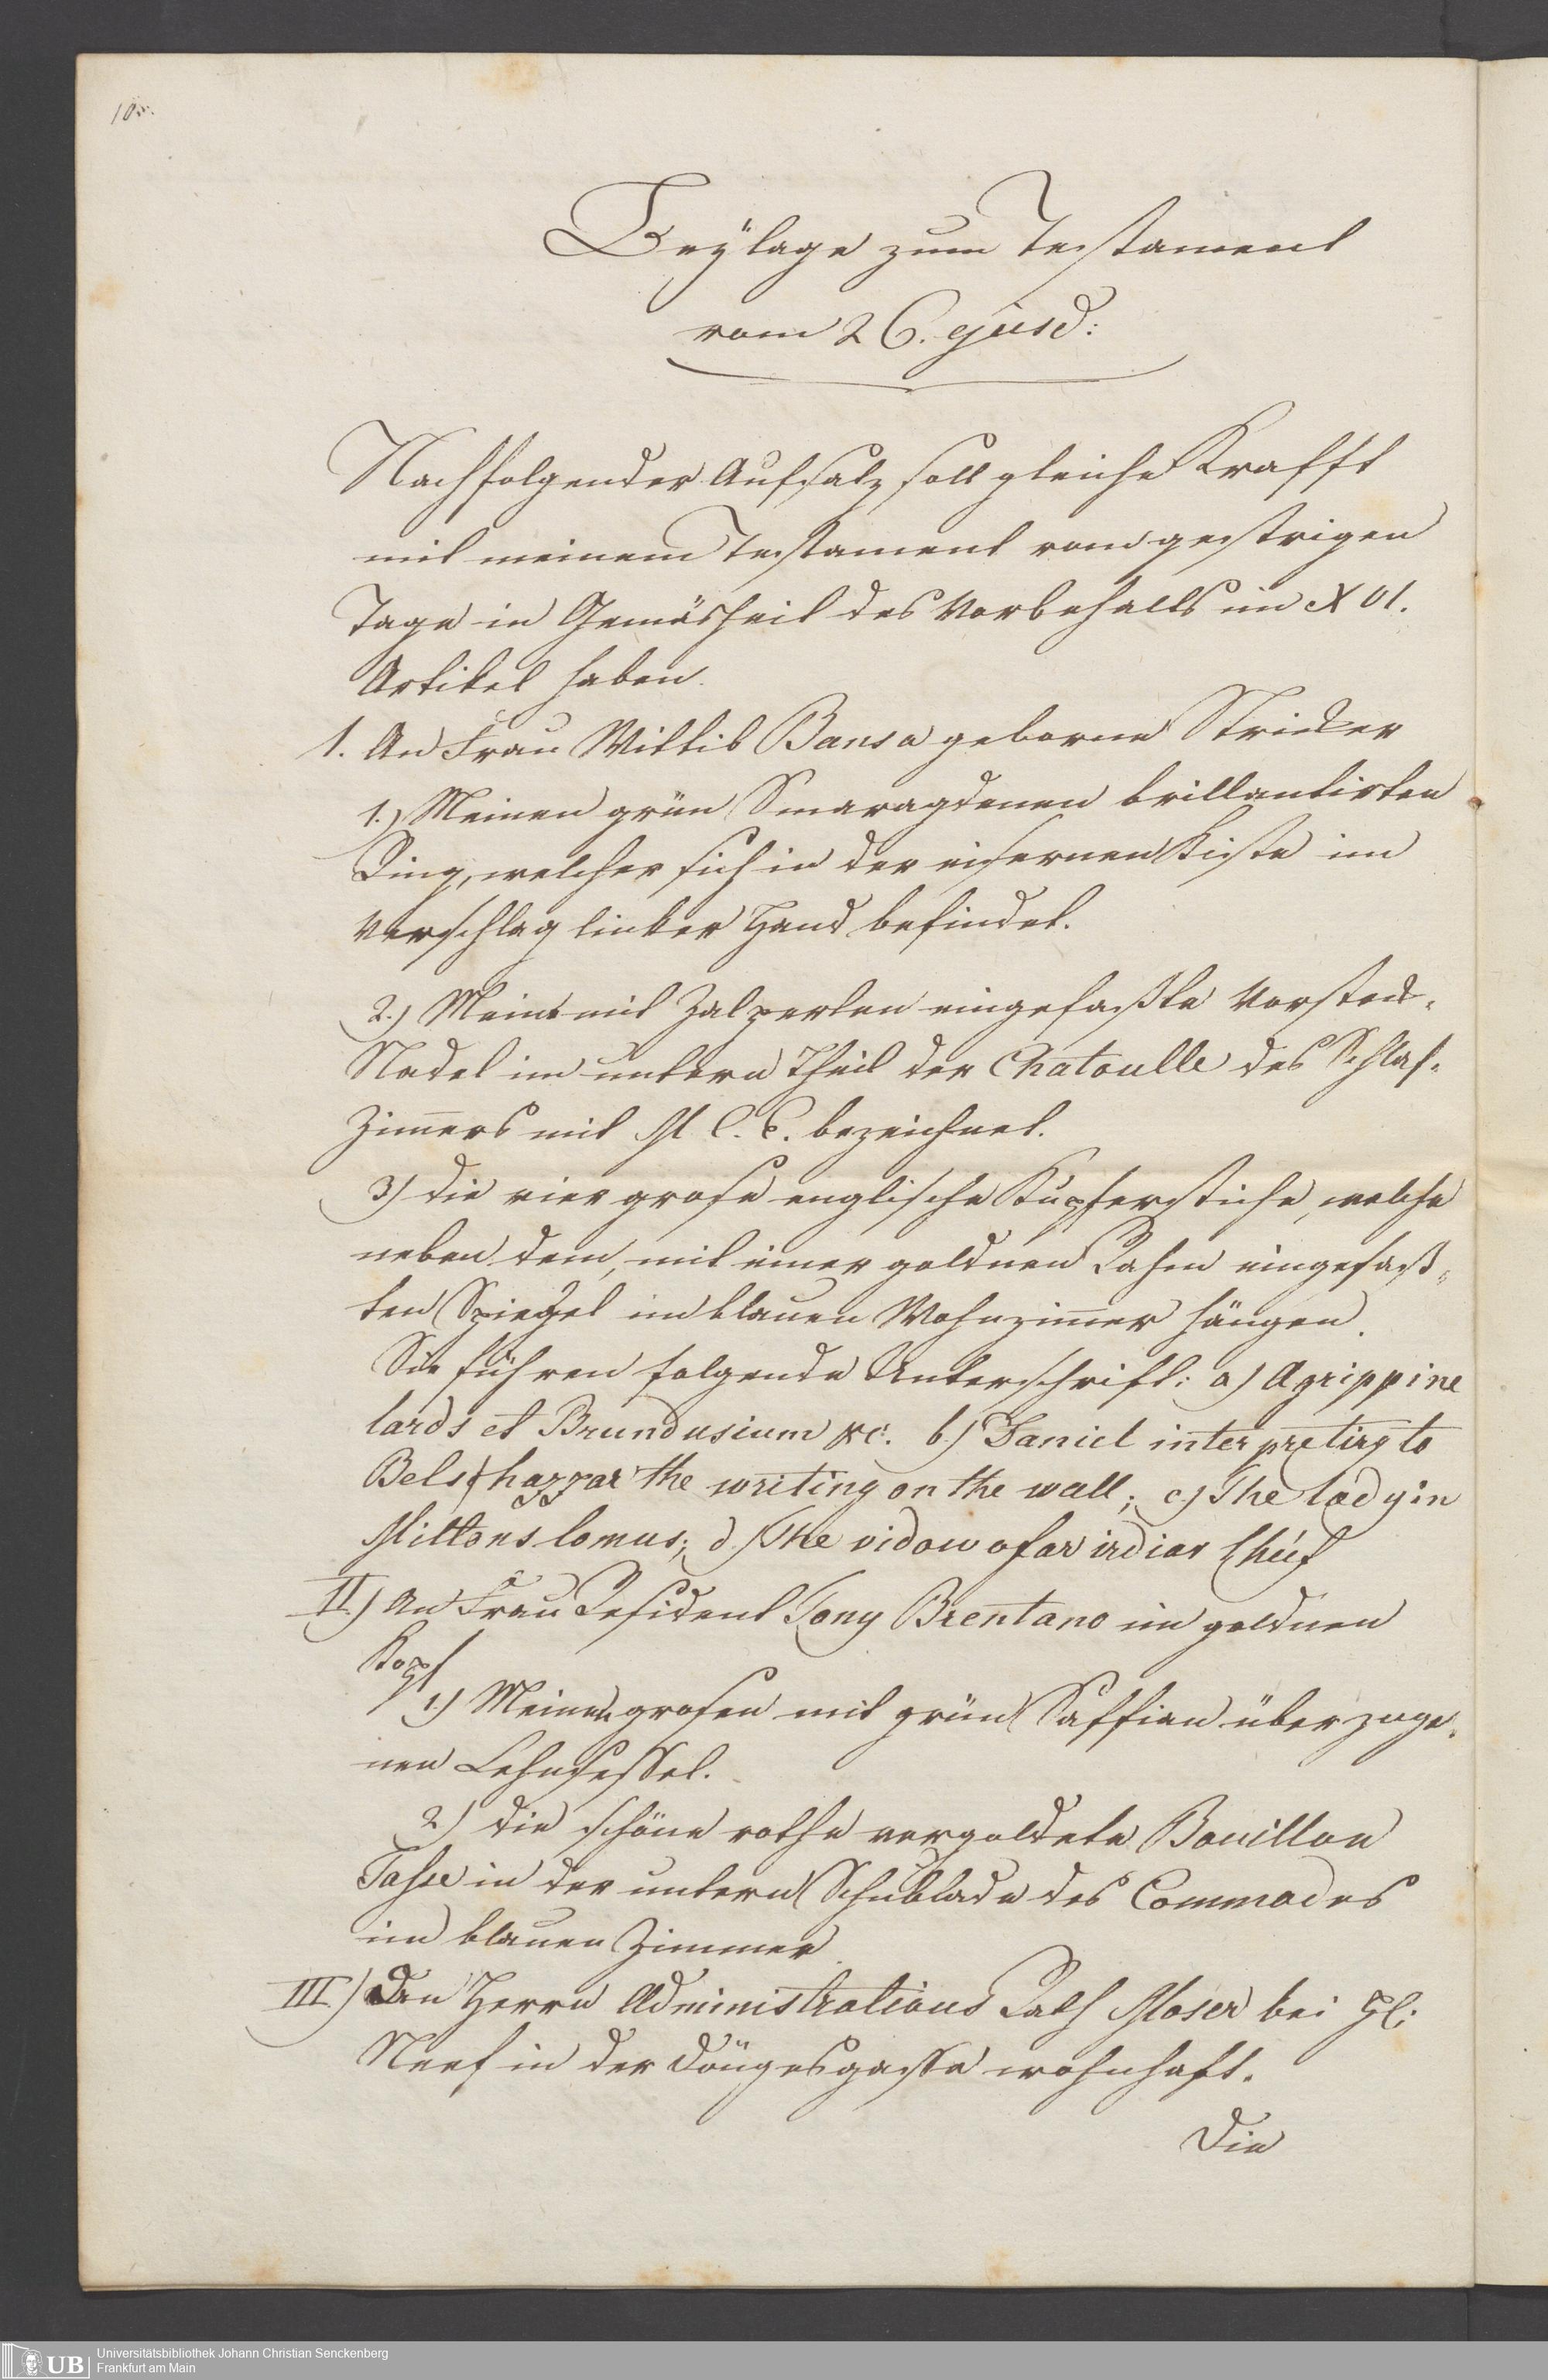 10
Beÿlage zum Testament
vom 26. ejusd:
Nachfolgender Aufsatz soll gleiche Krafft
mit meinem Testament vom gestrigen
Tage in Gemäsheit des Vorbehalts im XVI.
Artikel haben.
1. An Frau Wittib Bansa geborne Stricker
1.) Meinen grün Smaragdenen brillantirten
Ring, welcher sich in der eisernen Kiste im
Verschlag linker Hand befindet.
2.) Meine mit Zalperlen eingefaßte Vorsteck-
Nadel im untern Theil der Chatoulle des Schlaf-
Zimers mit M. C. E. bezeichnet.
3) die vier grose englische Kupferstiche, welche
neben dem, mit einer goldnen Rahm eingefaß-
ten Spiegel im blauen Wohnzimer hängen.
Sie führen folgende Unterschrift: a) Agrippine
lards et Brundusium &c. b.) Daniel interpretirg to
Belsthazzar the writing on the wall; c.) The lady in
Miltons lomus; d.) The vidow of ar irdiar Chief
II.) An Frau Resident Tony Brentano im goldnen
Kopf
1.) Meinen grosen mit grün Saffian überzoge-
nen Lehnsessel.
2) die schöne rothe vergoldete Bouillon
Tasse in der untern Schublade des Commodes
im blauen Zimmer
III.) Den Herrn Administrations Rath Moser bei H:
Neef in der Döngesgasse wohnhaft.
Die
UB Universitätsbibliothek Johann Christian Senckenberg
Frankfurt am Main